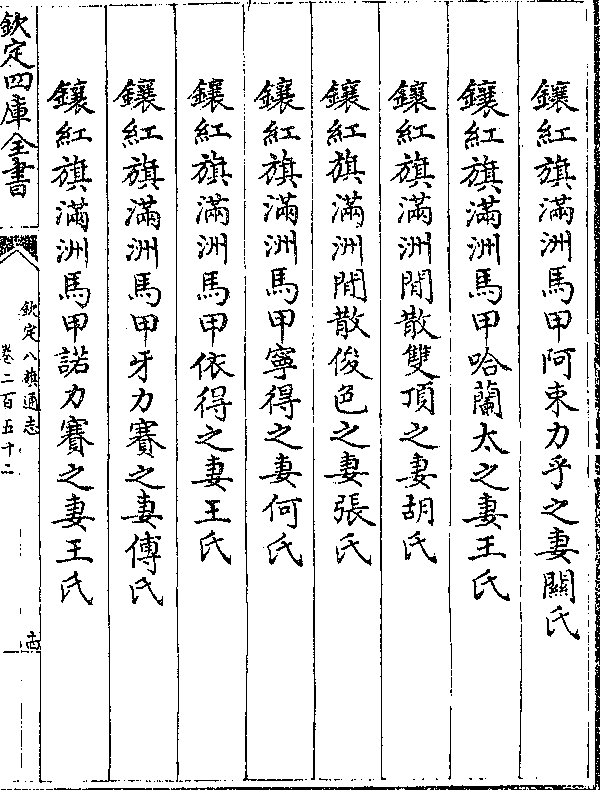 鑲紅旗滿洲馬甲阿束力乎之妻關氏
鑲紅旗滿洲馬甲哈蘭太之妻王氏
鑲紅旗滿洲閒散雙頂之妻胡氏
鑲紅旗滿洲閒散俊色之妻張氏
鑲紅旗滿洲馬甲寧得之妻何氏
鑲紅旗滿洲馬甲依得之妻王氏
鑲紅旗滿洲馬甲牙力賽之妻傅氏
鑲紅旗滿洲馬甲諾力賽之妻王氏
欽定四庫全書
欽定八旗通志
卷二百五十二
十四